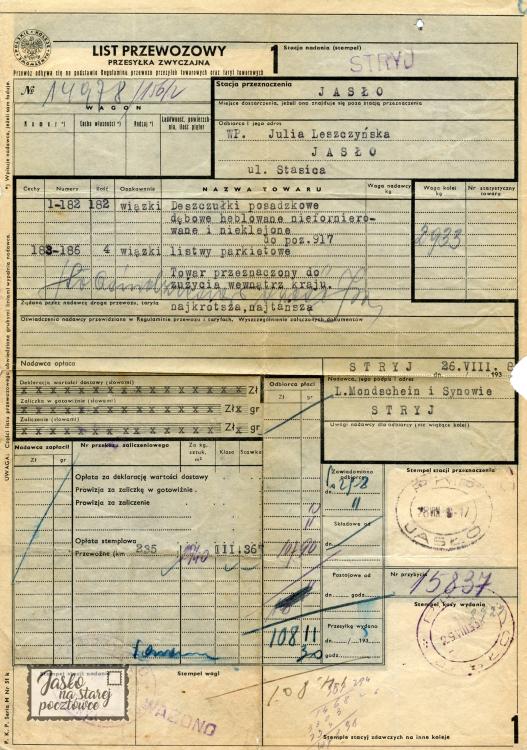 LIST PRZEWOZOWY
PRZESYŁKA ZWYCZAJNA
1
Stacja nadania (stempel)
STRYJ
Przewóz odbywa się na podstawie Regulaminu przewozu przesyłek towarowych oraz taryf towarowych
№ 14978
Stacja przeznaczenia
JASŁO
Miejsce dostarczenia, jeżeli ono znajduje się poza stacją przeznaczenia
WAGON
Numer *)
Cecha własności *)
Rodzaj *)
Odbiorca i jego adres
WP. Julia Leszczyńska
JASŁO
ul. Stasica
Cechy
Numery
Ilość
Opakowanie
NAZWA TOWARU
Waga nadawcy kg
Waga kolei kg
Nr statystyczny towaru
1-182 182 wiązki Deszczułki posadzkowe
dębowe heblowane nieforniero-
wane i nieklejone
do poz.917
2933
183-186 4 wiązki listwy parkietowe
Towar przeznaczony do
zużycia wewnątrz kraju.
Żądana przez nadawcę droga przewozu, taryfa
najkrotsza,najtańsza
Oświadczenia nadawcy przewidziane w Regulaminie przewozu i taryfach. Wyszczególnienie załączonych dokumentów
Nadawca opłaca
STRYJ 26.VIII.
dn. 193
Deklaracja wartości dostawy (słowami)
x x x x x x x x x x x x Zł
Odbiorca płaci
Nadawca, jego podpis i adres
L.Mondschein i Synowie
STRYJ
Zaliczka w gotowiźnie (słowami)
x x x x x x x x x x x x Zł x gr
Zaliczenie (słowami)
x x x x x x x x x x x x Zł x gr
Uwagi nadawcy dla odbiorcy (nie wiążące kolei)
Nadawca zapłacił
Zł gr
Nr przekazu zaliczeniowego
Za kg, sztuk, m²
Klasa
Stawka
Zł gr
Zawiadomiono odbiorcę
Stempel stacji przeznaczenia
Opłata za deklarację wartości dostawy
Prowizja za zaliczkę w gotowiźnie
Prowizja za zaliczenie
dn.
Składowe od
JASŁO
Opłata stemplowa
Przewoźne (km 235 III.36
Postojowe od
dn. godz.
Nr przybycia
15837
Stempel kasy wydania
108 11
Przesyłkę wydano
dn. 193
godz.
Stempel wagi
WAŻONO
Jasło
na starej
pocztówce
Stemple stacyj zdawczych na inne koleje
1
*) Wpisuje nadawca, jeżeli sam ładuje.
UWAGA: Części listu przewozowego, obwiedzione grubymi liniami wypełnia nadawca.
P. K. P. Seria M Nr 51 k.